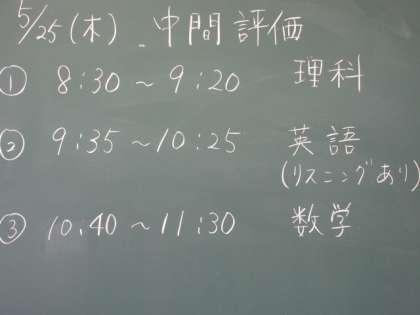 5/25(木) 中間評価
① 8:30 ～ 9:20 理科
② 9:35 ～ 10:25 英語
(リスニングあり)
③ 10:40 ～ 11:30 数学